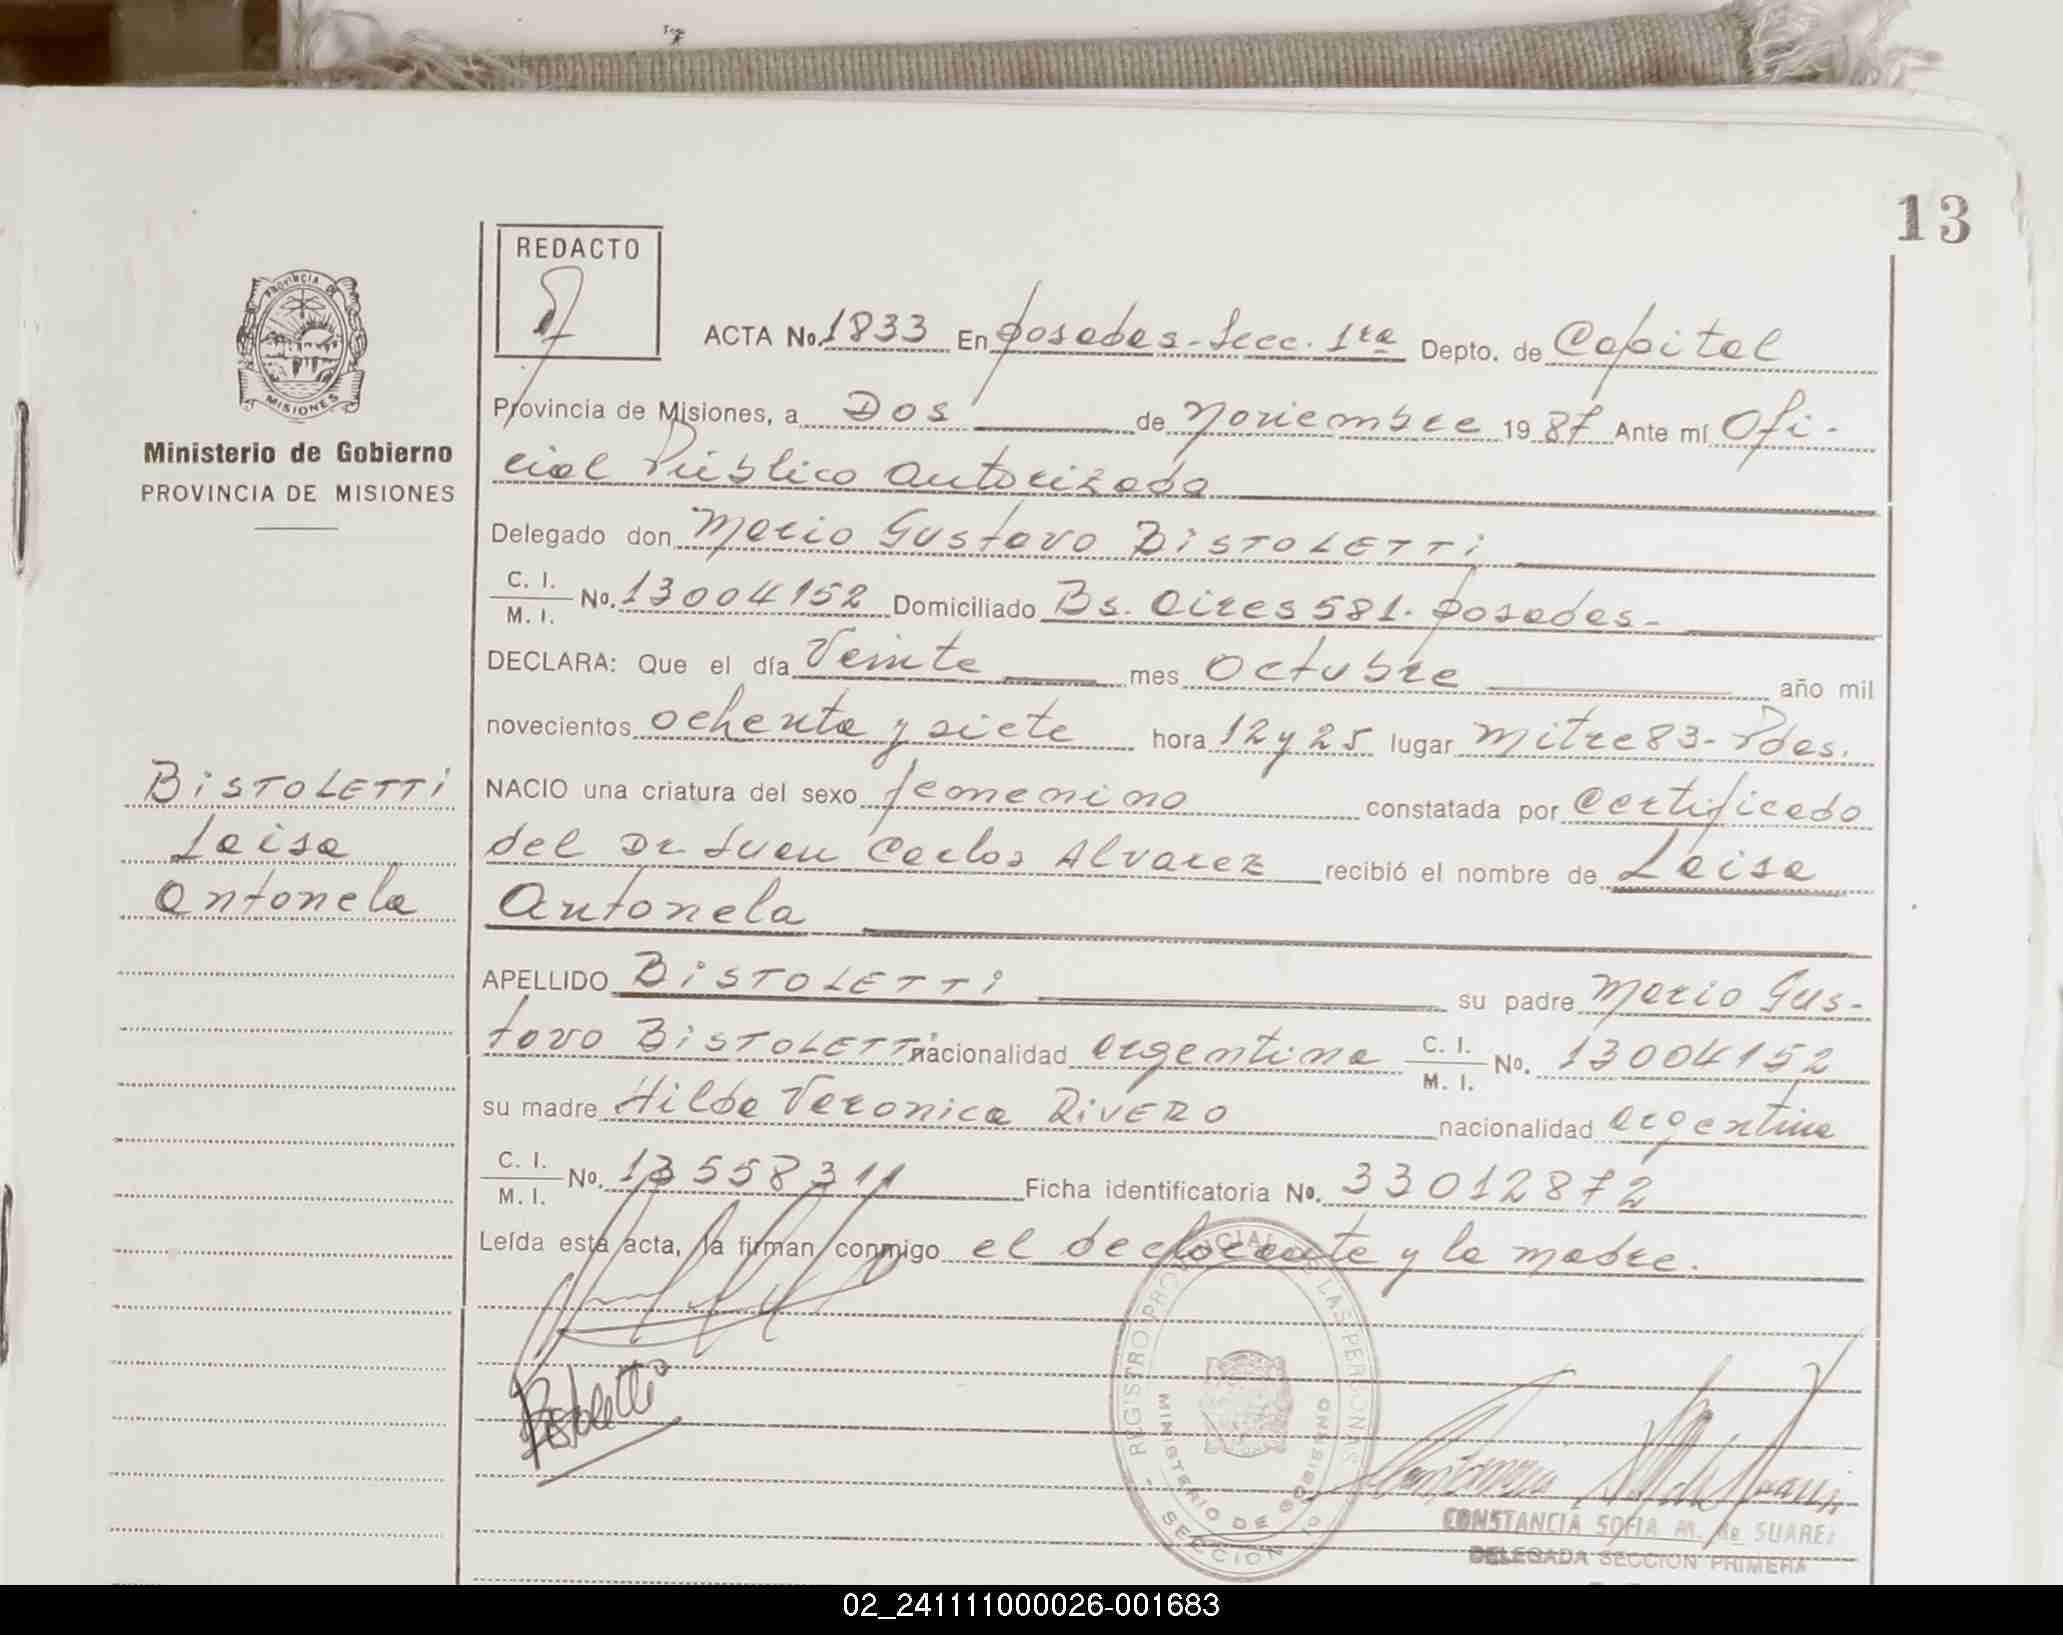 13
REDACTO
PROVINCIA DE
MISIONES
Ministerio de Gobierno
PROVINCIA DE MISIONES
ACTA No. 1833 En Posadas - Secc. 1ra Depto. de Capital
Provincia de Misiones, a Dos de Noviembre 1987 Ante mí Ofi-
cial Público Autorizado
Delegado don Mario Gustavo BISTOLETTI
C. I.
M. I. No. 13004152 Domiciliado Bs. Aires 581. Posadas-
DECLARA: Que el día Veinte mes Octubre año mil
novecientos ochenta y siete hora 12 y 25 lugar Mitre 83- Pdas.
BISTOLETTI
Laisa
Antonela
NACIO una criatura del sexo femenino constatada por Certificado
del Dr. Juan Carlos Alvarez recibió el nombre de Laisa
Antonela
APELLIDO BISTOLETTI su padre Mario Gus-
tavo BISTOLETTI nacionalidad argentina C. I.
M. I. No. 13004152
su madre Hilda Veronica RIVERO nacionalidad argentina
C. I.
M. I. No. 13558311 Ficha identificatoria No. 33012872
Leída esta acta, la firman conmigo el declarante y la madre.
Bistoletti
REGISTRO PROVINCIAL DE LAS PERSONAS
MINISTERIO DE GOBIERNO
SECCION 1a
CONSTANCIA SOFIA M. de SUAREZ
DELEGADA SECCION PRIMERA
02_241111000026-001683